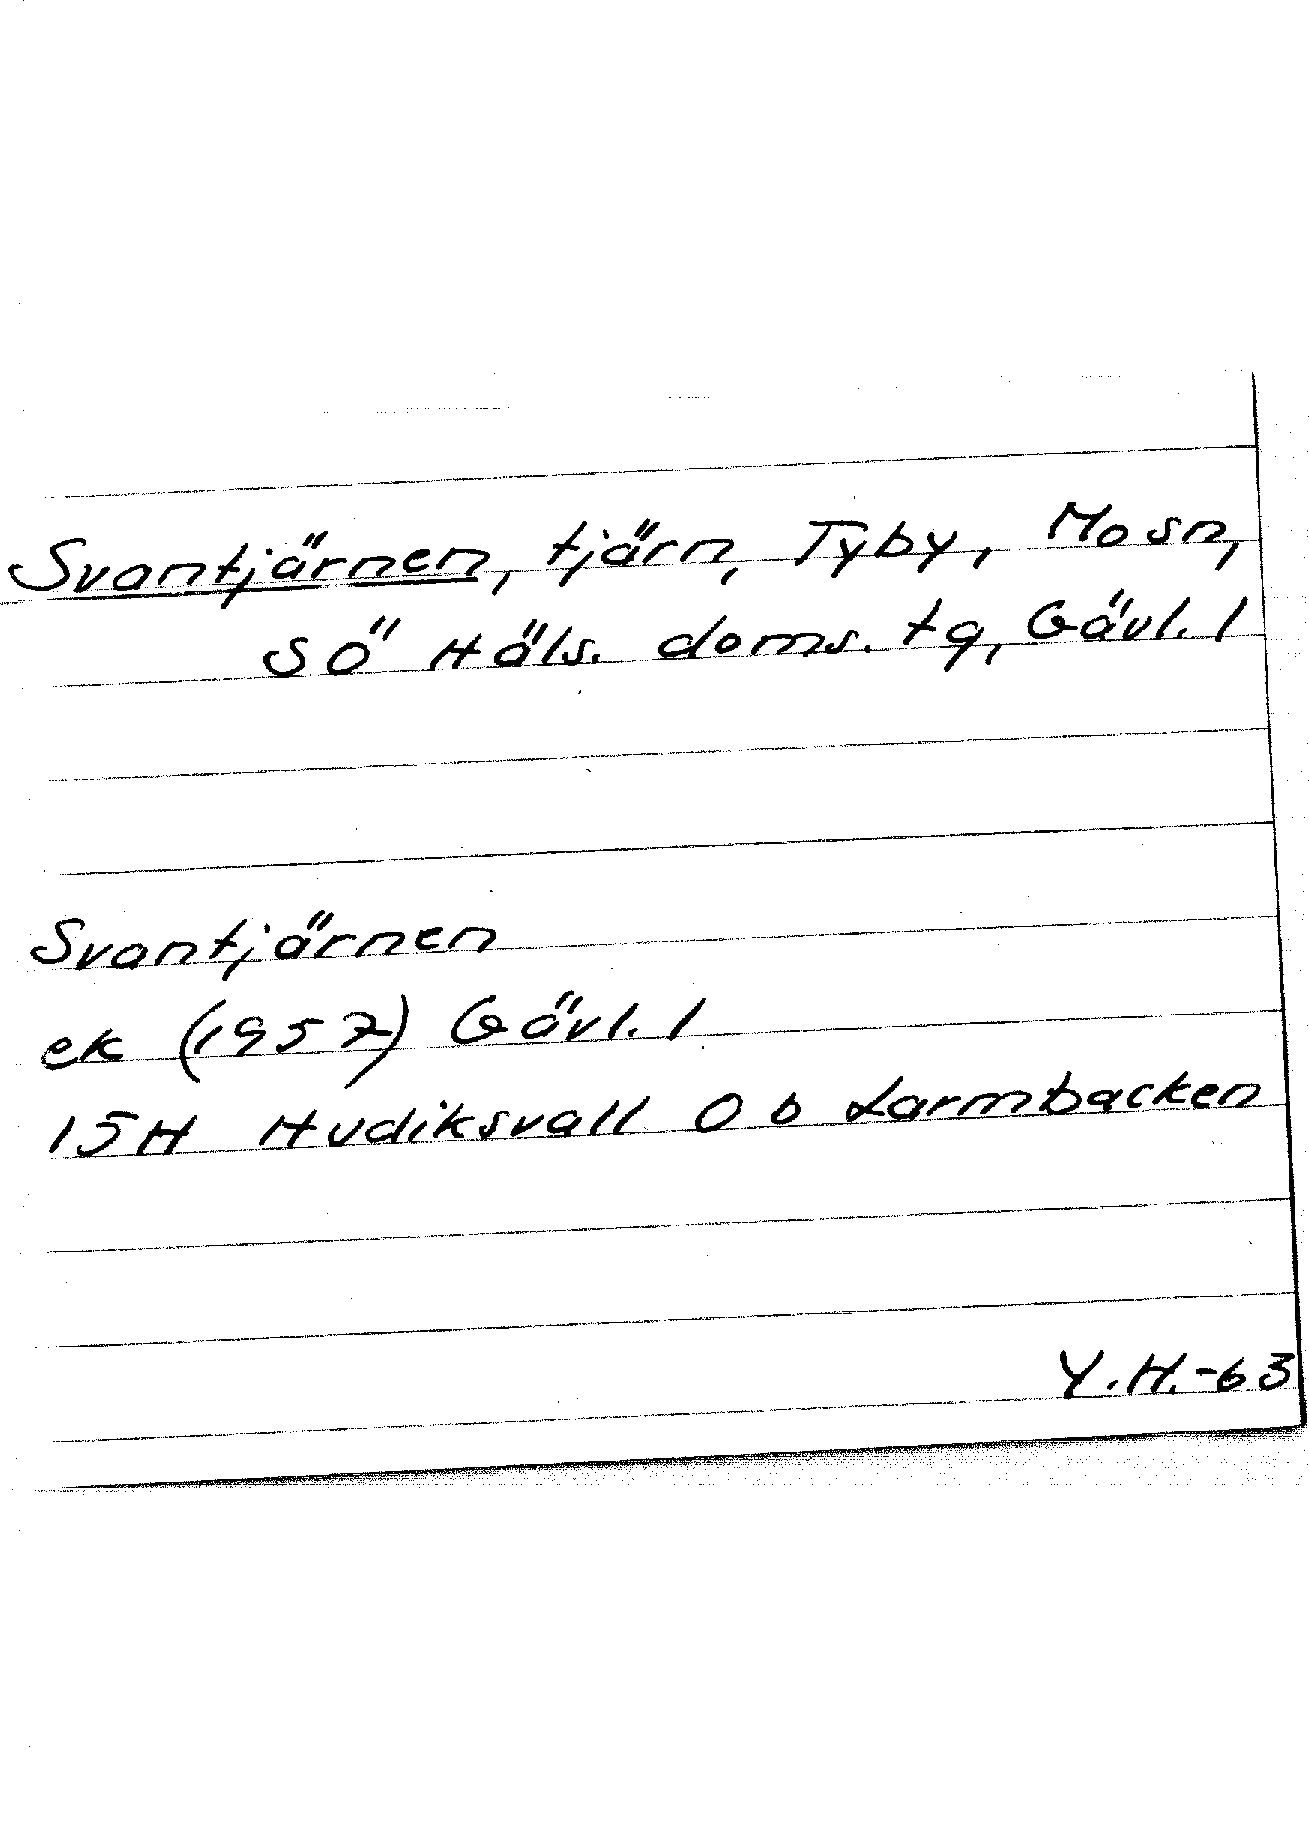 Svantjärnen, tjärn, Tyby, Mo sn,
SÖ Häls. doms. tg, Gävl. l
Svantjärnen
ek (1957) Gävl. l
15H Hudiksvall 0 b Larmbacken
Y.H.-63